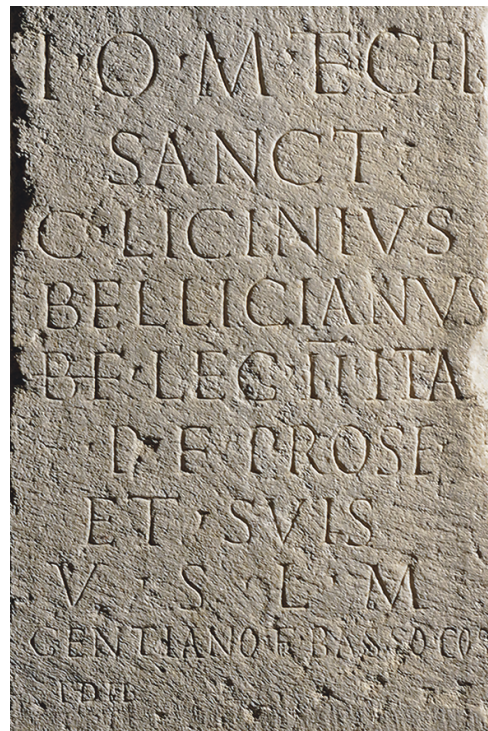 I·O·M·E·CEL
SANCT
C·LICINIVS
BELLICIANVS
BF·LEG·II ITA
P·F·PROSE
ET·SVIS
V·S·L·M
GENTIANO·E·BASSO·COS